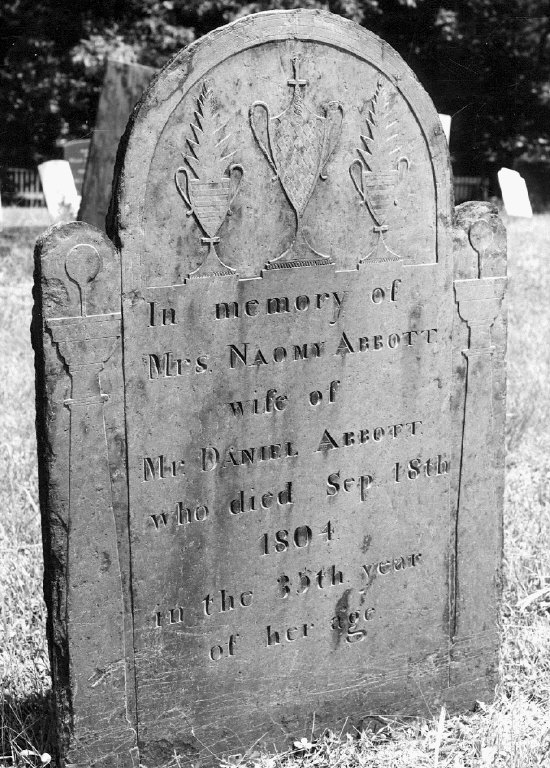 In memory of
Mrs. NAOMY ABBOTT
wife of
Mr. DANIEL ABBOTT
who died Sep. 18th
1804
in the 35th year
of her age